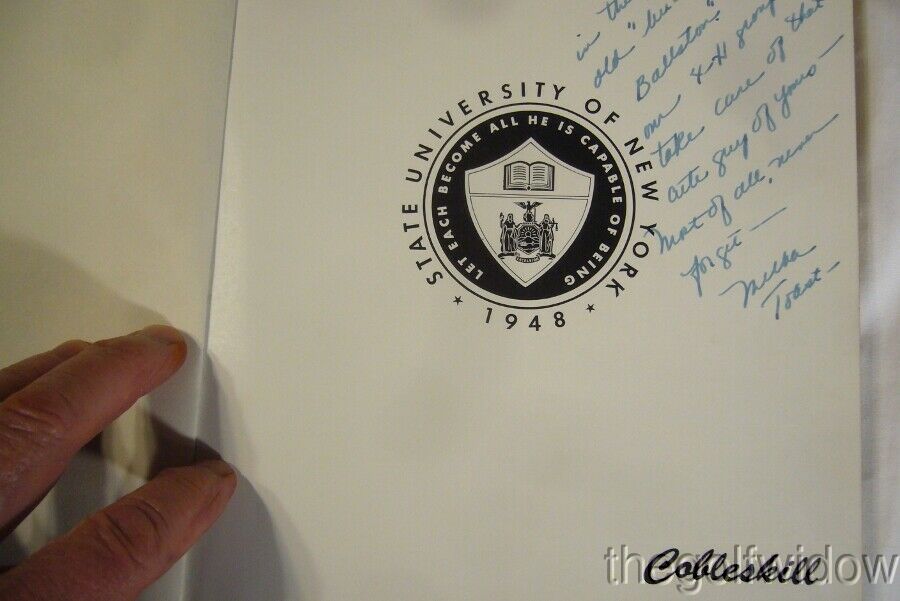 in the
old "
Ballston"
our 4-H group
take care of that
cute guy of yours —
Most of all, never
forget —
Melba
Toast —
STATE UNIVERSITY OF NEW YORK
LET EACH BECOME ALL HE IS CAPABLE OF BEING
★ 1948 ★
Cobleskill
thegolfwidow